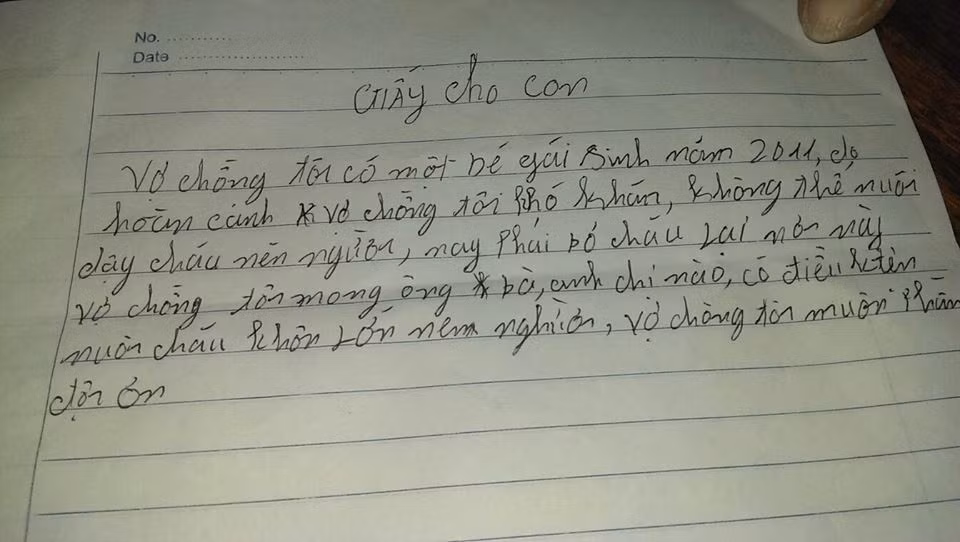 No. ............
Date .....................
Giấy cho con
Vợ chồng tôi có một bé gái sinh năm 2011, do
hoàn cảnh vợ chồng tôi khó khăn, không thể nuôi
dậy cháu nên người, nay phải bỏ cháu lại nơi này
vợ chồng tôi mong ông bà, anh chị nào, có điều kiện
nuôi cháu khôn lớn nêm người, vợ chồng tôi muôn phần
đội ơn